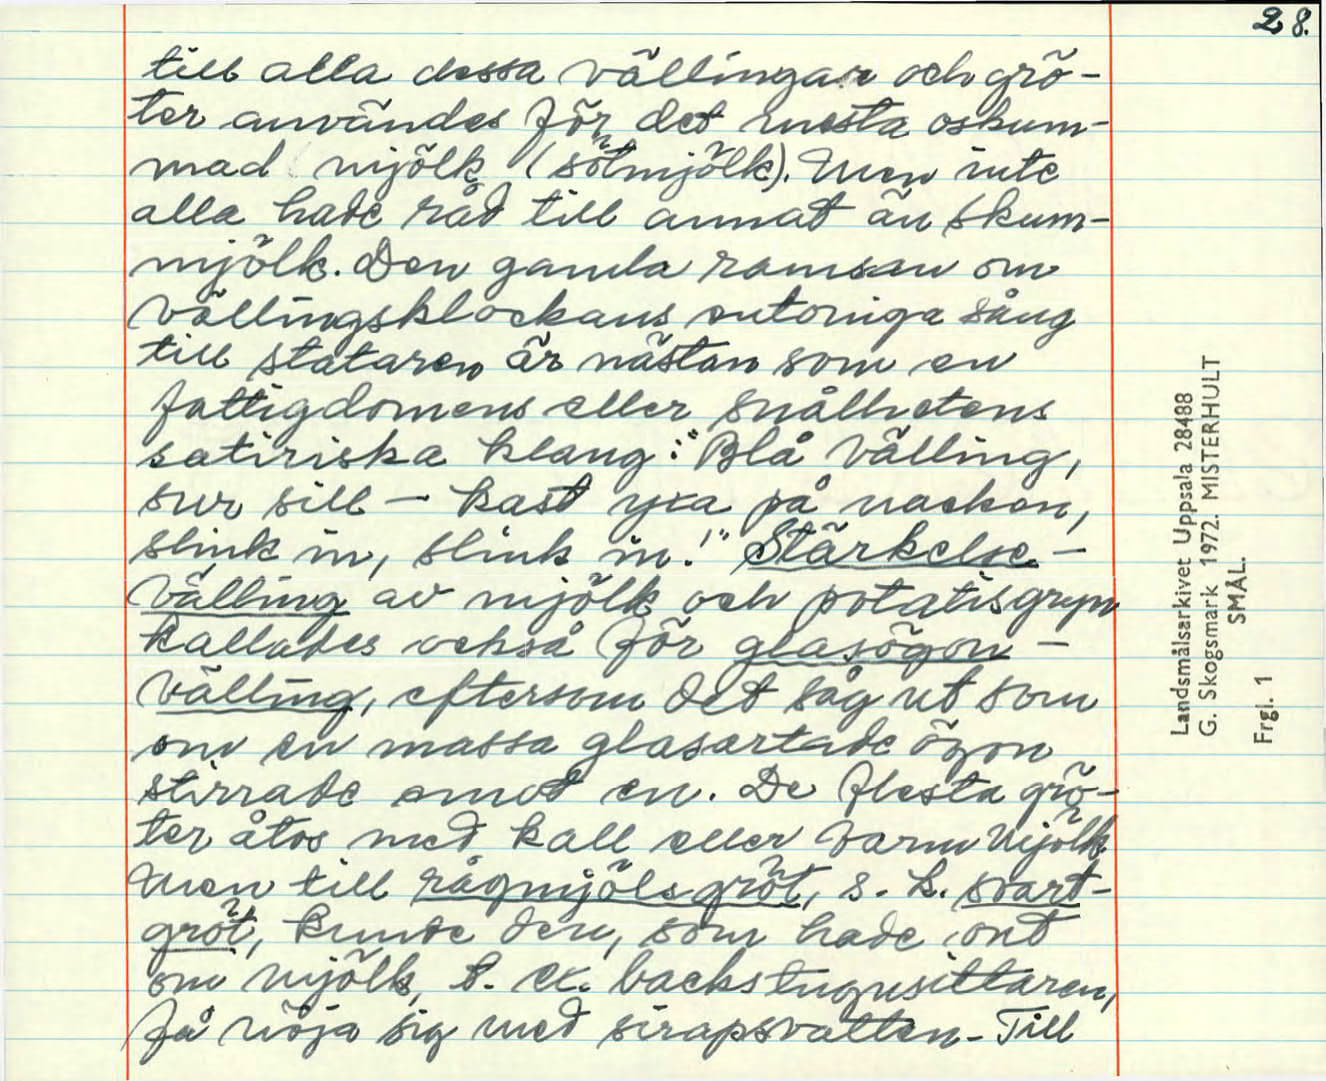 28.
till alla dessa vällingar och grö-
ter användes för det mesta oskum-
mad mjölk (sötmjölk). Men inte
alla hade råd till annat än skum-
mjölk. Den gamla ramsan om
vällingsklockans entoniga sång
till stataren är nästan som en
fattigdomens eller snålhetens
satiriska klang: "Blå välling,
sur sill – kast yxa på nacken,
slink in, slink in!" Stärkelse-
välling av mjölk och potatisgryn
kallades också för glasögon-
välling, eftersom det såg ut som
om en massa glasartade ögon
stirrade emot en. De flesta grö-
ter åtos med kall eller varm mjölk.
Men till rågmjölsgröt, s. k. svart-
gröt, kunde den, som hade ont
om mjölk, t. ex. backstugusittaren,
få nöja sig med sirapsvatten. Till
Landsmålsarkivet Uppsala 28488
G. Skogsmark 1972. MISTERHULT
SMÅL.
Frgl. 1